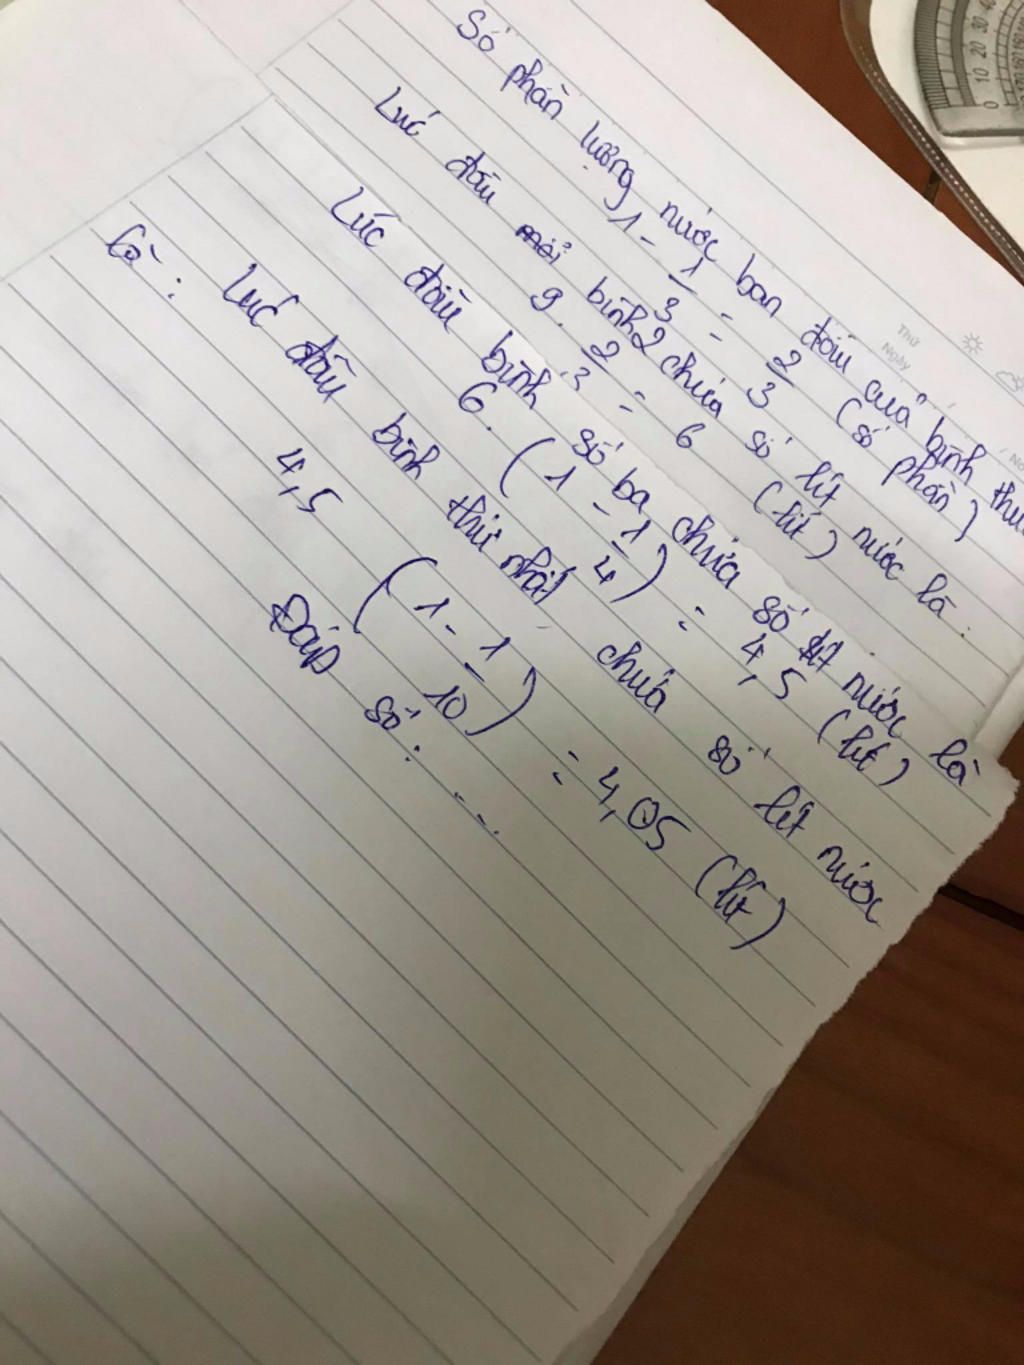 Số phần lượng nước ban đầu của bình thứ
1 - 1/3 = 2/3 (số phần)
Lúc đầu bình 2 chứa số lít nước là :
9 . 2/3 = 6 (lít)
Lúc đầu bình số ba chứa số lít nước là
6 . (1 - 1/4) = 4,5 (lít)
Lúc đầu bình thứ nhất chứa số lít nước
là :
4,5 (1 - 1/10) = 4,05 (lít)
Đáp số : ...
Thứ
Ngày
0 10 20 30 40